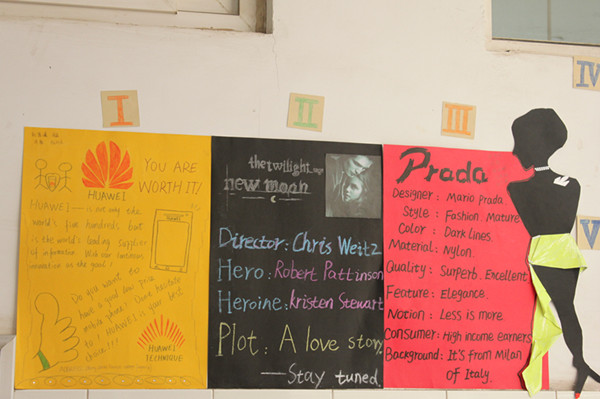 I
II
III
IV
V
HUAWEI
YOU ARE
WORTH IT!
HUAWEI — is not only the
world's five hundreds but
is the world's leading supplier
of information. With our
innovation as the goal!
Do you want to
have a good low price
smart phone? Don't hesitate
to! HUAWEI is your best
choice!!!
HUAWEI
TECHNIQUE
the twilight saga
new moon
Director: Chris Weitz
Hero: Robert Pattinson
Heroine: Kristen Stewart
Plot: A love story.
—Stay tuned.
Prada
Designer: Mario Prada.
Style: Fashion. Mature
Color: Dark lines.
Material: Nylon.
Quality: Surperb. Excellent
Feature: Elegance.
Notion: Less is more.
Consumer: High income earners
Background: It's from Milan
of Italy.